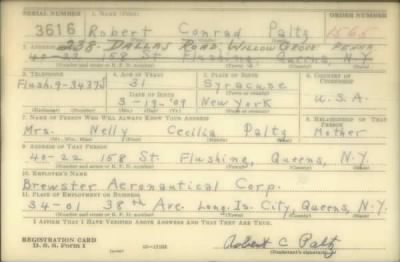 SERIAL NUMBER 1. NAME (Print) ORDER NUMBER
3616 Robert Conrad Paltz 1565
2. ADDRESS 238 DALLAS ROAD, WILLOW GROVE PENNA
40-22 158 St Flushing, Queens, N.Y.
3. TELEPHONE 4. AGE IN YEARS 5. PLACE OF BIRTH 6. COUNTRY OF CITIZENSHIP
Flush. 9-3437J 31 Syracuse
DATE OF BIRTH (Town or county)
3-19-'09 New York U.S.A.
(Exchange) (Number) (Mo.) (Day) (Yr.) (State or country)
7. NAME OF PERSON WHO WILL ALWAYS KNOW YOUR ADDRESS 8. RELATIONSHIP OF THAT PERSON
Mrs. Nelly Cecilia Paltz Mother
(Mr., Mrs., Miss) (First) (Middle) (Last)
9. ADDRESS OF THAT PERSON
40-22 158 St. Flushing, Queens, N.Y.
10. EMPLOYER'S NAME
Brewster Aeronautical Corp.
11. PLACE OF EMPLOYMENT OR BUSINESS
34-01 38th Ave. Long. Is. City, Queens, N.Y.
I AFFIRM THAT I HAVE VERIFIED ABOVE ANSWERS AND THAT THEY ARE TRUE.
REGISTRATION CARD
D. S. S. Form 1 Robert C Paltz